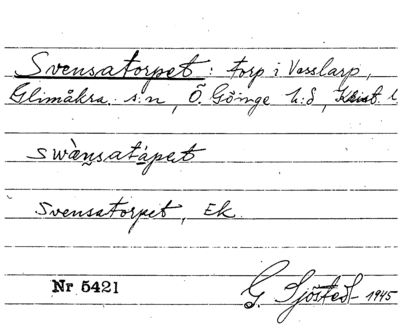 Svensatorpet: torp i Vesslarp,
Glimåkra s:n, Ö. Göinge h:d, Krist. l.
swænsatápet
Svensatorpet, EK.
Nr 5421
G. Sjöstedt 1945